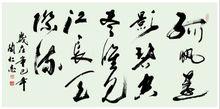 孤帆遠
影碧空
盡唯見
長江天
際流
歲在辛巳年